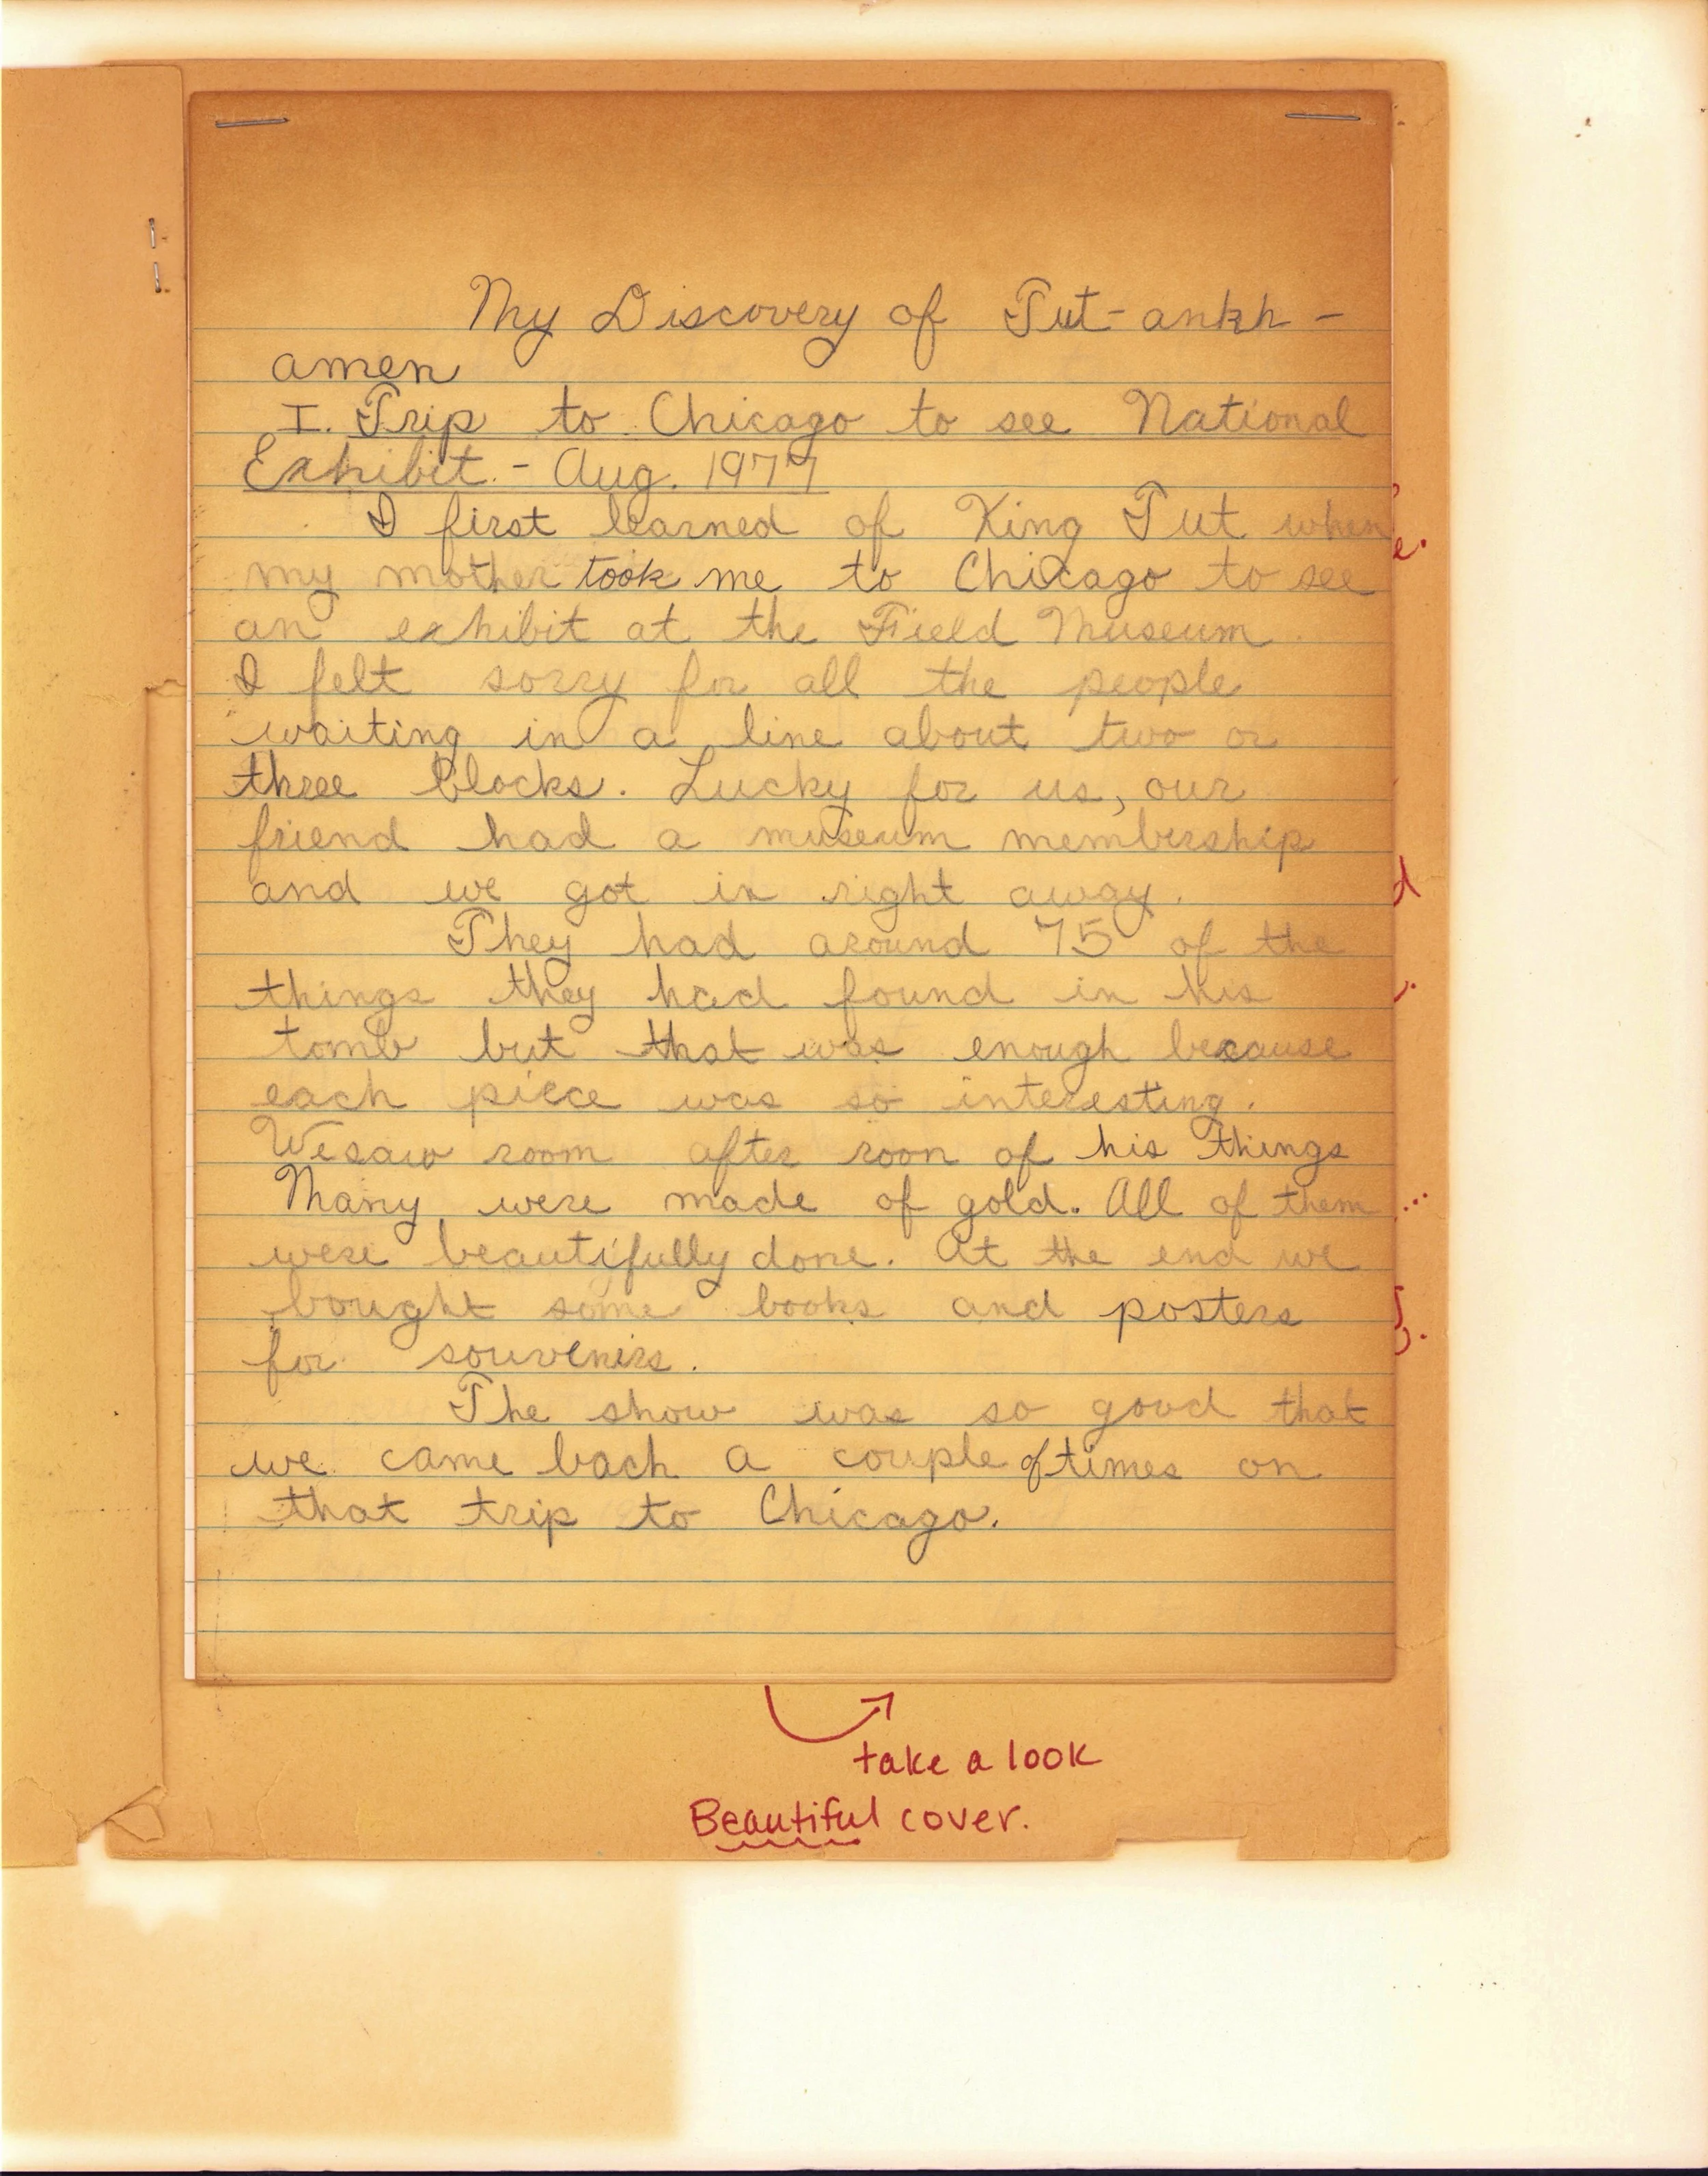 My Discovery of Tut-ankh-
amen
I. Trip to Chicago to see National
Exhibit. - Aug. 1977
I first learned of King Tut when
my mother took me to Chicago to see
an exhibit at the Field Museum.
I felt sorry for all the people
waiting in a line about two or
three blocks. Lucky for us, our
friend had a museum membership
and we got in right away.
They had around 75 of the
things they had found in his
tomb but that was enough because
each piece was so interesting.
We saw room after roon of his things
Many were made of gold. All of them
were beautifully done. At the end we
bought some books and posters
for souvenirs.
The show was so good that
we came back a couple of times on
that trip to Chicago.
take a look
Beautiful cover.